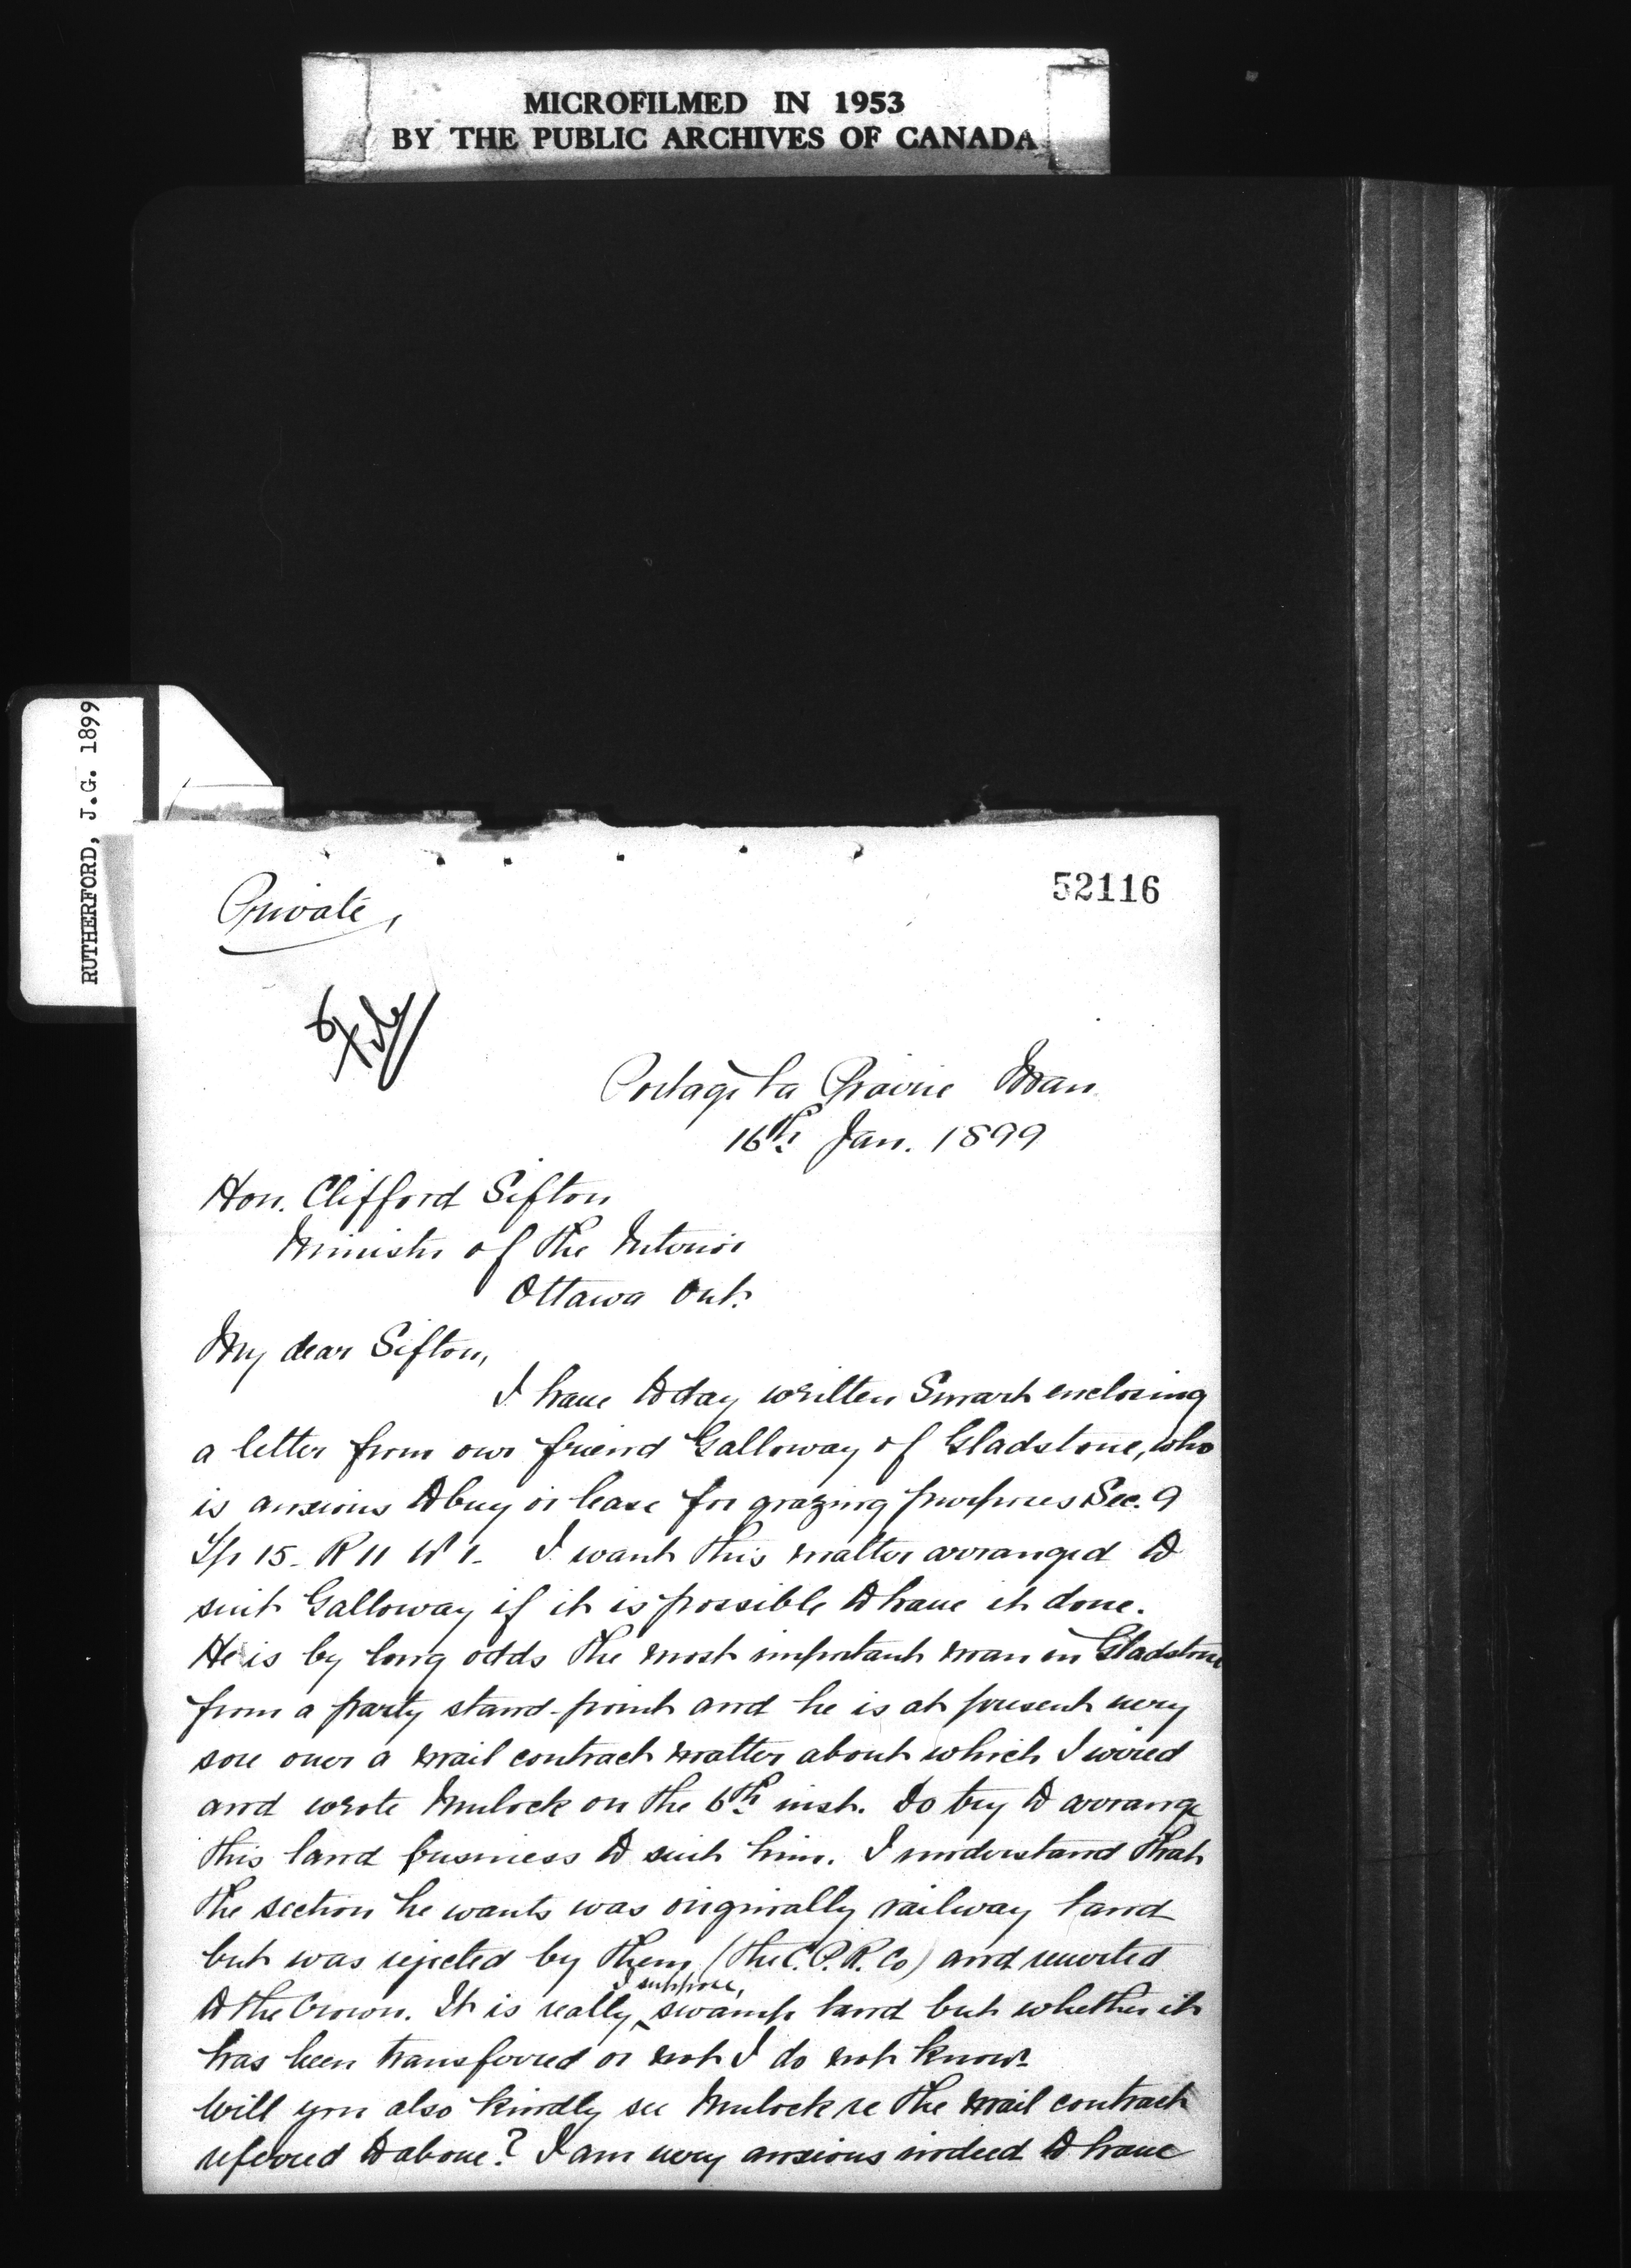 MICROFILMED IN 1953
BY THE PUBLIC ARCHIVES OF CANADA
RUTHERFORD, J.G. 1899
52116
Private,
File
Portage la Prairie Man.
16th Jan. 1899
Hon. Clifford Sifton
Minister of the Interior
Ottawa Ont.
My dear Sifton,
I have today written Smart enclosing
a letter from our friend Galloway of Gladstone, who
is anxious to buy or lease for grazing purposes Sec. 9
Tp 15. R 11 W 1. I want this matter arranged to
suit Galloway if it is possible to have it done.
He is by long odds the most important man in Gladstone
from a party stand-point and he is at present very
sore over a mail contract matter about which I wired
and wrote Mulock on the 6th inst. Do try to arrange
this land business to suit him. I understand that
the section he wants was originally railway land
but was rejected by them, (the C.P.R. Co) and reverted
I suppose,
to the Crown. It is really swamp land but whether it
has been transferred or not I do not know.
Will you also kindly see Mulock re the mail contract
referred to above? I am very anxious indeed to have